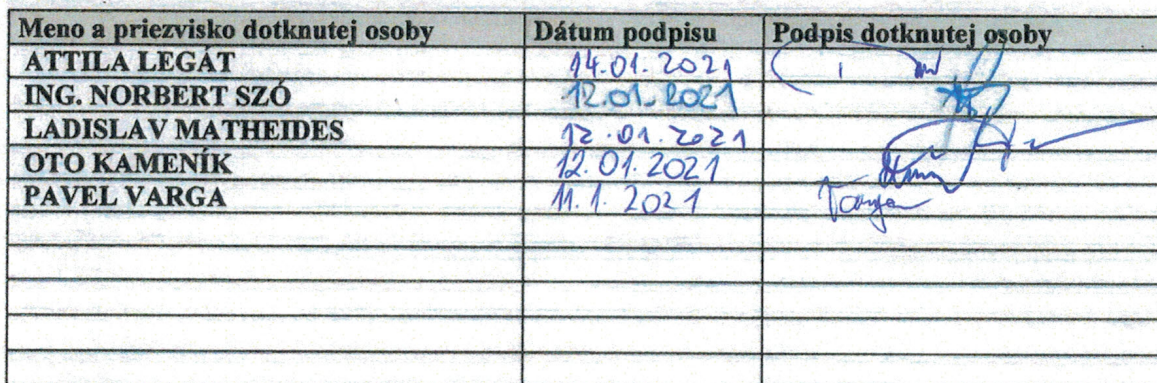 Meno a priezvisko dotknutej osoby Dátum podpisu Podpis dotknutej osoby
ATTILA LEGÁT 14.01.2021
ING. NORBERT SZÓ 12.01.2021
LADISLAV MATHEIDES 12.01.2021
OTO KAMENÍK 12.01.2021
PAVEL VARGA 11.1.2021 Varga